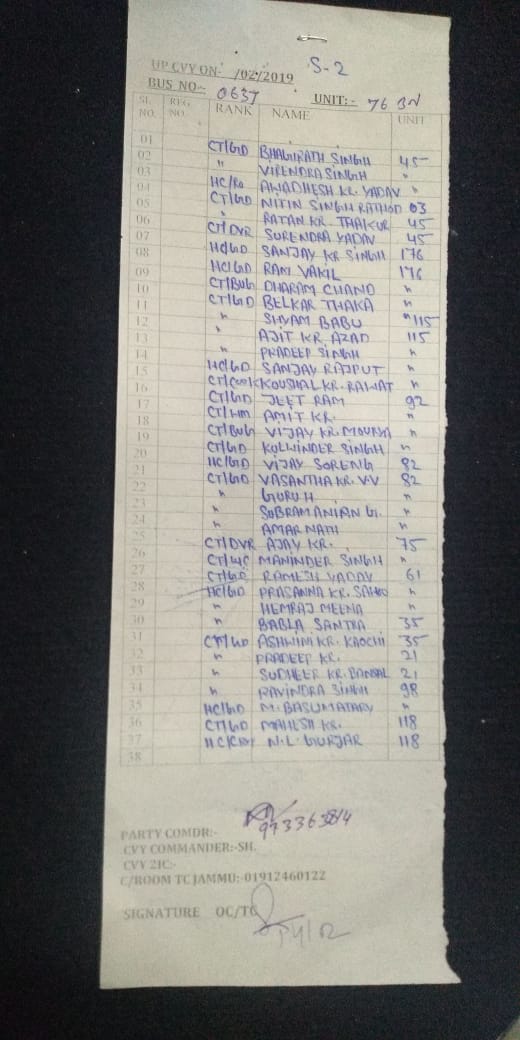 S-2
UP CVY ON- /02/2019
BUS NO:- 0637 UNIT:- 76 BN
SL. NO. REG. NO. RANK NAME UNIT
01 CT/GD BHAGIRATH SINGH 45
02 " VIRENDRA SINGH "
03 HC/RO AWADHESH KR. YADAV "
04 CT/GD NITIN SINGH RATHOD 03
05 " RATAN KR. THAKUR 45
06 CT/DVR SURENDRA YADAV 45
07 HC/GD SANJAY KR SINGH 176
08 HC/GD RAM VAKIL 176
09 CT/BUG DHARAM CHAND "
10 CT/GD BELKAR THAKA "
11 " SHYAM BABU " 115
12 " AJIT KR AZAD 115
13 " PRADEEP SINGH "
14 HC/GD SANJAY RAJPUT "
15 CT/COOK KOUSHAL KR. RAWAT "
16 CT/GD JEET RAM 92
17 CT/WM AMIT KR. "
18 CT/BUG VIJAY KR. MOURYA "
19 CT/GD KULWINDER SINGH "
20 HC/GD VIJAY SORENG 82
21 CT/GD VASANTHA KR. V.V 82
22 " GURU H "
23 " SUBRAMANIAN G. "
24 " AMAR NATH "
25 CT/DVR AJAY KR. 75
26 CT/WC MANINDER SINGH "
27 CT/GD RAMESH YADAV 61
28 HC/GD PRASANNA KR. SAHOO "
29 " HEMRAJ MEENA "
30 " BABLA SANTRA 35
31 CT/GD ASHWINI KR. KAOCHI 35
32 " PRADEEP KR. 21
33 " SUDHEER KR. BANSAL 21
34 " RAVINDRA SINGH 98
35 HC/GD M. BASUMATARY "
36 CT/GD MAHESH KR. 118
37 HC/CRY N.L. GURJAR 118
38
PARTY COMDR:-
CVY COMMANDER:-SH.
CVY 2IC:-
C/ROOM TC JAMMU:-01912460122
SIGNATURE OC/TC